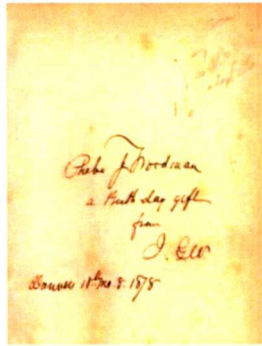 Phebe J Woodman
a Birth day gift
from
J. G. W
Danvers 11th Mo. 8. 1878